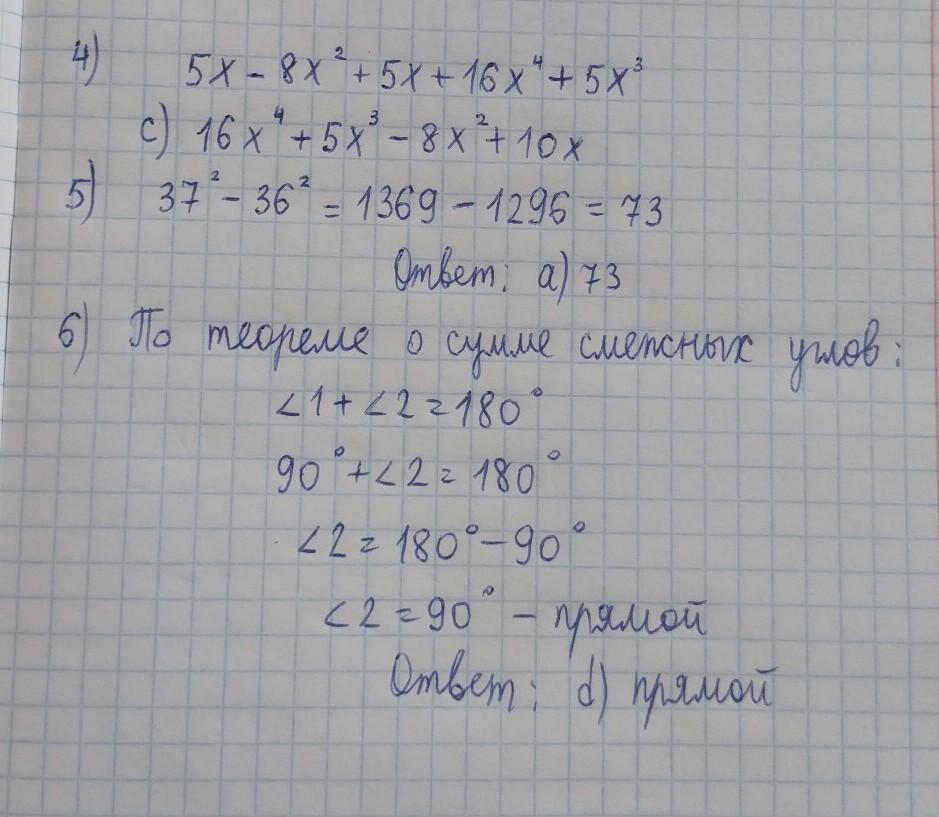 4) 5x - 8x² + 5x + 16x⁴ + 5x³
c) 16x⁴ + 5x³ - 8x² + 10x
5) 37² - 36² = 1369 - 1296 = 73
Ответ: a) 73
6) По теореме о сумме смежных углов:
∠1 + ∠2 = 180°
90° + ∠2 = 180°
∠2 = 180° - 90°
∠2 = 90° - прямой
Ответ: d) прямой